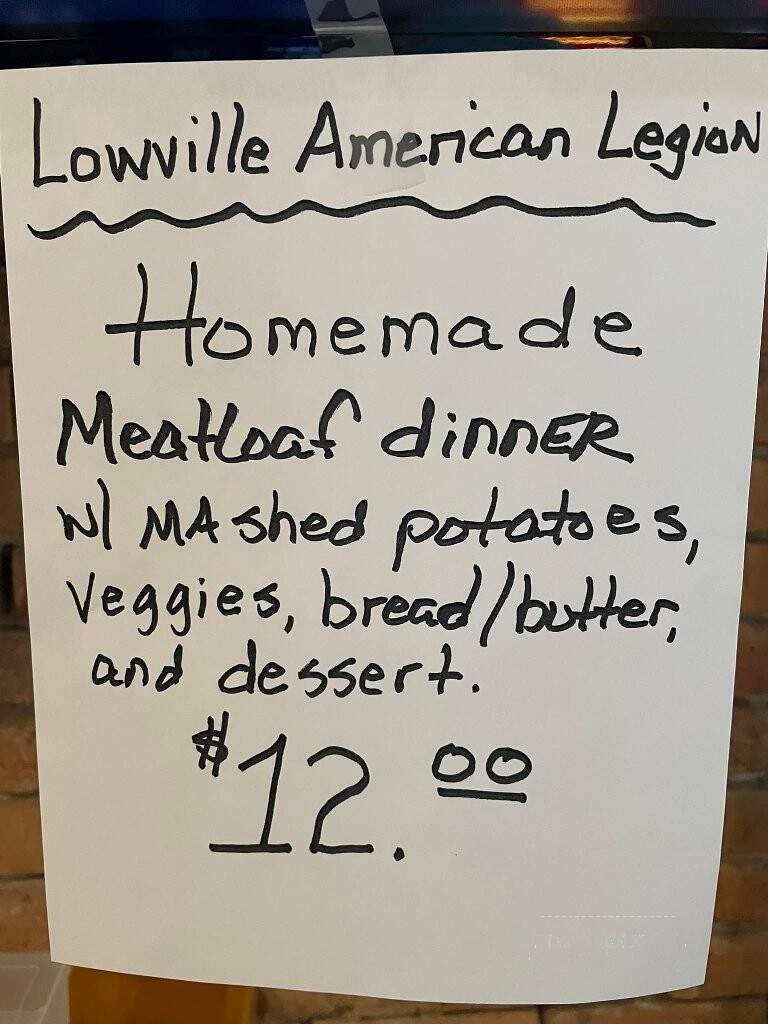 Lowville American Legion
Homemade
Meatloaf dinnER
w/ MAshed potatoes,
Veggies, bread/butter,
and dessert.
$12.00